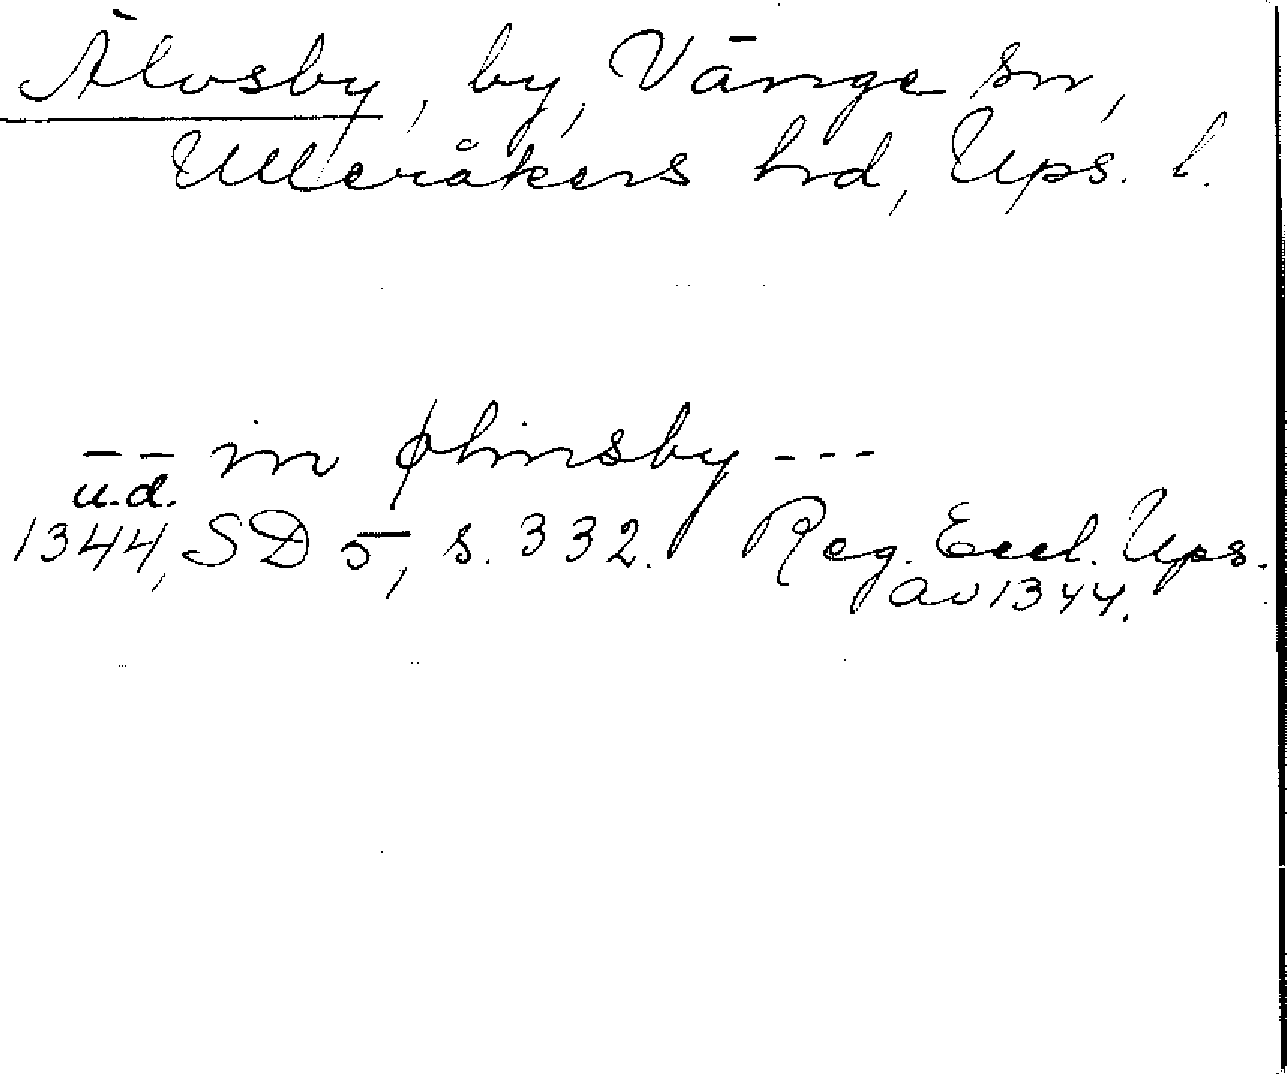 Älvsby, by, Vänge sn,
Ulleråkers hrd, Ups. l.
-- in ølinsby ---
u.d.
1344, SD 5, s. 332. Reg. Eccl. Ups.
av 1344.